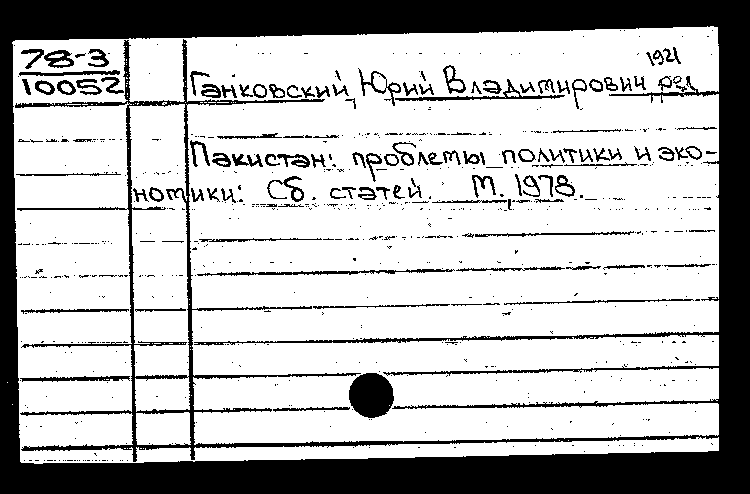 78-3
10052
1921
Ганковский, Юрий Владимирович, ред
Пакистан: проблемы политики и эко-
номики: Сб. статей. М., 1978.